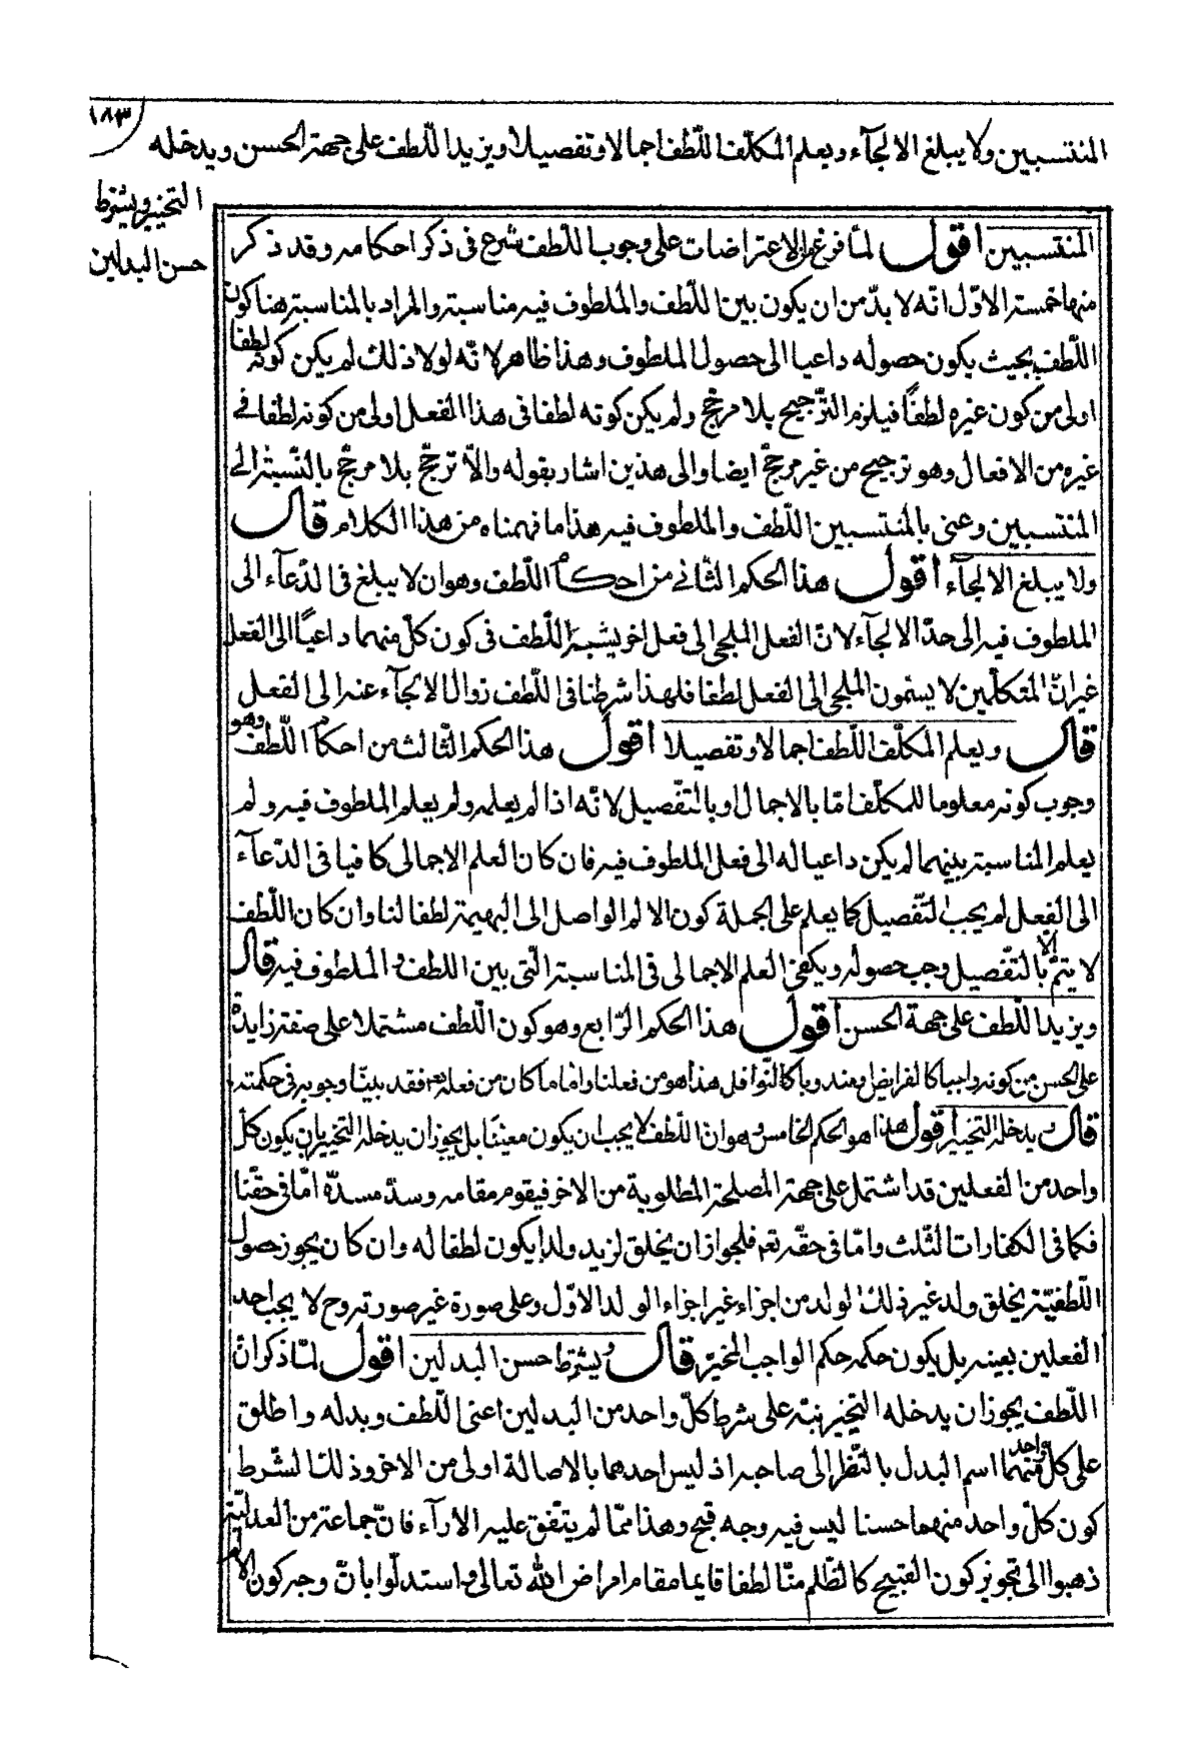 ١٨٣
المنتسبين ولا يبلغ الالجآء ويعلم المكلّف اللّطف اجمالا وتفصيلا ويزيد اللّطف على جهة الحسن ويدخله
التخيير ويشترط
حسن البدلين
المنتسبين اقول لمّا فرغ من الاعتراضات على وجوب اللّطف شرع فى ذكر احكامه وقد ذكر
منها خمسة الاوّل انّه لا بدّ من ان يكون بين اللّطف والملطوف فيه مناسبة والمراد بالمناسبة هنا كون
اللّطف بحيث يكون حصوله داعيا الى حصول الملطوف وهذا ظاهر لانّه لولا ذلك لم يكن كونه لطفا
اولى من كون غيره لطفاً فيلزم التّرجيح بلا مرجّح ولم يكن كونه لطفا فى هذا الفعل اولى من كونه لطفا فے
غيره من الافعال وهو ترجيح من غير مرجّح ايضا والى هذين اشار بقوله والّا ترجّح بلا مرجّح بالنّسبة الى
المنتسبين وعنى بالمنتسبين اللّطف والملطوف فيه هذا ما فهمناه من هذا الكلام قال
ولا يبلغ الالجآء اقول هذا الحكم الثانے من احكام اللّطف وهو ان لا يبلغ فى الدّعآء الى
الملطوف فيه الى حدّ الالجآء لانّ الفعل الملجى الى فعل اخر يشبه اللّطف فى كون كلّ منهما داعيًا الى الفعل
غير انّ المتكلّمين لا يسمّون الملجى الى الفعل لطفا فلهذا شرطنا فى اللّطف زوال الالجآء عنه الى الفعل
قال ويعلم المكلّف اللّطف اجمالا وتفصيلا اقول هذا الحكم الثّالث من احكام اللّطف وهو
وجوب كونه معلوما للمكلّف امّا بالاجمال او بالتّفصيل لانّه اذا لم يعلمه ولم يعلم الملطوف فيه ولم
يعلم المناسبة بينهما لم يكن داعيا له الى فعل الملطوف فيه فان كان العلم الاجمالى كافيا فى الدّعآء
الى الفعل لم يجب التّفصيل كما يعلم على الجملة كون الالم الواصل الى البهيمة لطفا لنا وان كان اللّطف
لا يتمّ الّا بالتّفصيل وجب حصوله ويكفى العلم الاجمالى فى المناسبة الّتى بين اللطف والملطوف فيه قال
ويزيد اللّطف على جهة الحسن اقول هذا الحكم الرّابع وهو كون اللّطف مشتملا على صفة زايدة
على الحسن من كونه واجبا كالفرايض او مندوبا كالنّوافل هذا هو من فعلنا وامّا ما كان من فعله تع فقد بيّنّا وجوبه فى حكمته
قال ويدخله التخيير اقول هذا هو الحكم الخامس وهو انّ اللّطف لا يجب ان يكون معيّنا بل يجوز ان يدخله التخيير بان يكون كلّ
واحد من الفعلين قد اشتمل على جهة المصلحة المطلوبة من الاخر فيقوم مقامه وسدّ مسدّه امّا فى حقّنا
فكما فى الكفارات الثّلث وامّا فى حقّه تع فلجواز ان يخلق لزيد ولدا يكون لطفا له وان كان يجوز حصول
اللّطفيّة بخلق ولد غير ذلك الولد من اجزاء غير اجزاء الولد الاوّل وعلى صورة غير صورته وح لا يجب احد
الفعلين بعينه بل يكون حكمه حكم الواجب المخيّر قال ويشترط حسن البدلين اقول لمّا ذكر انّ
اللّطف يجوز ان يدخله التخيير نبّه على شرط كلّ واحد من البدلين اعنى اللّطف وبدله واطلق
على كلّ واحد منهما اسم البدل بالنّظر الى صاحبه اذ ليس احدهما بالاصالة اولى من الاخر وذلك الشّرط
كون كلّ واحد منهما حسنا ليس فيه وجه قبح وهذا ممّا لم يتّفق عليه الارآء فانّ جماعة من العدليّة
ذهبوا الى تجويز كون القبيح كالظّلم منّا لطفا قايما مقام امراض الله تعالى واستدلّوا بانّ وجه كون الالم